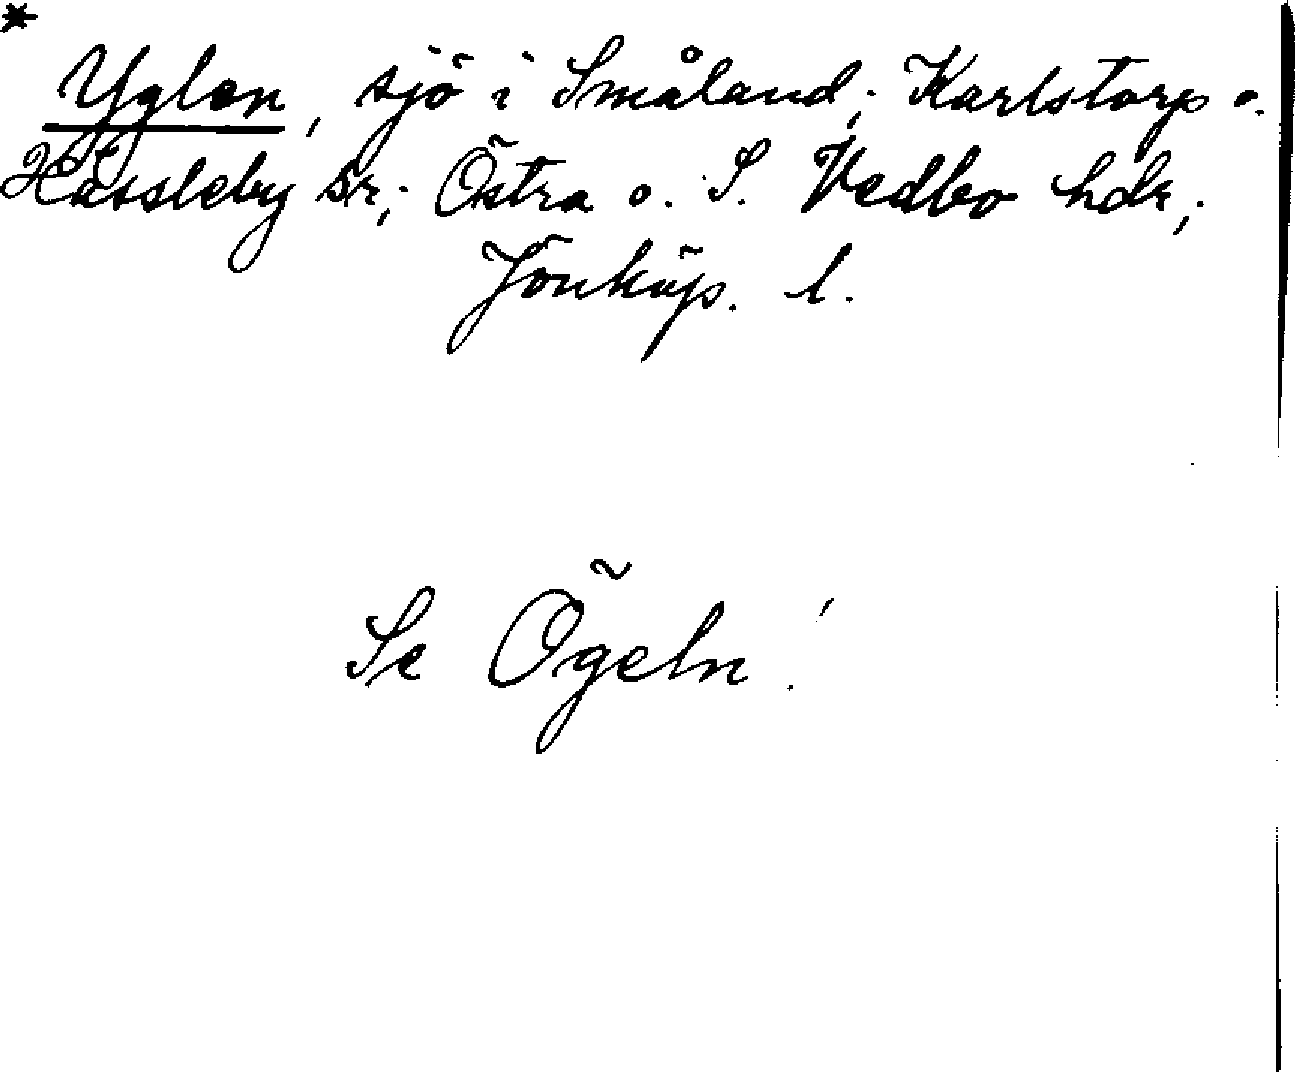 *
Yglen, sjö i Småland; Karlstorp o.
Hässleby sr; Östra o. S. Vedbo hdr;
Jönköp. l.
Se Ögeln!